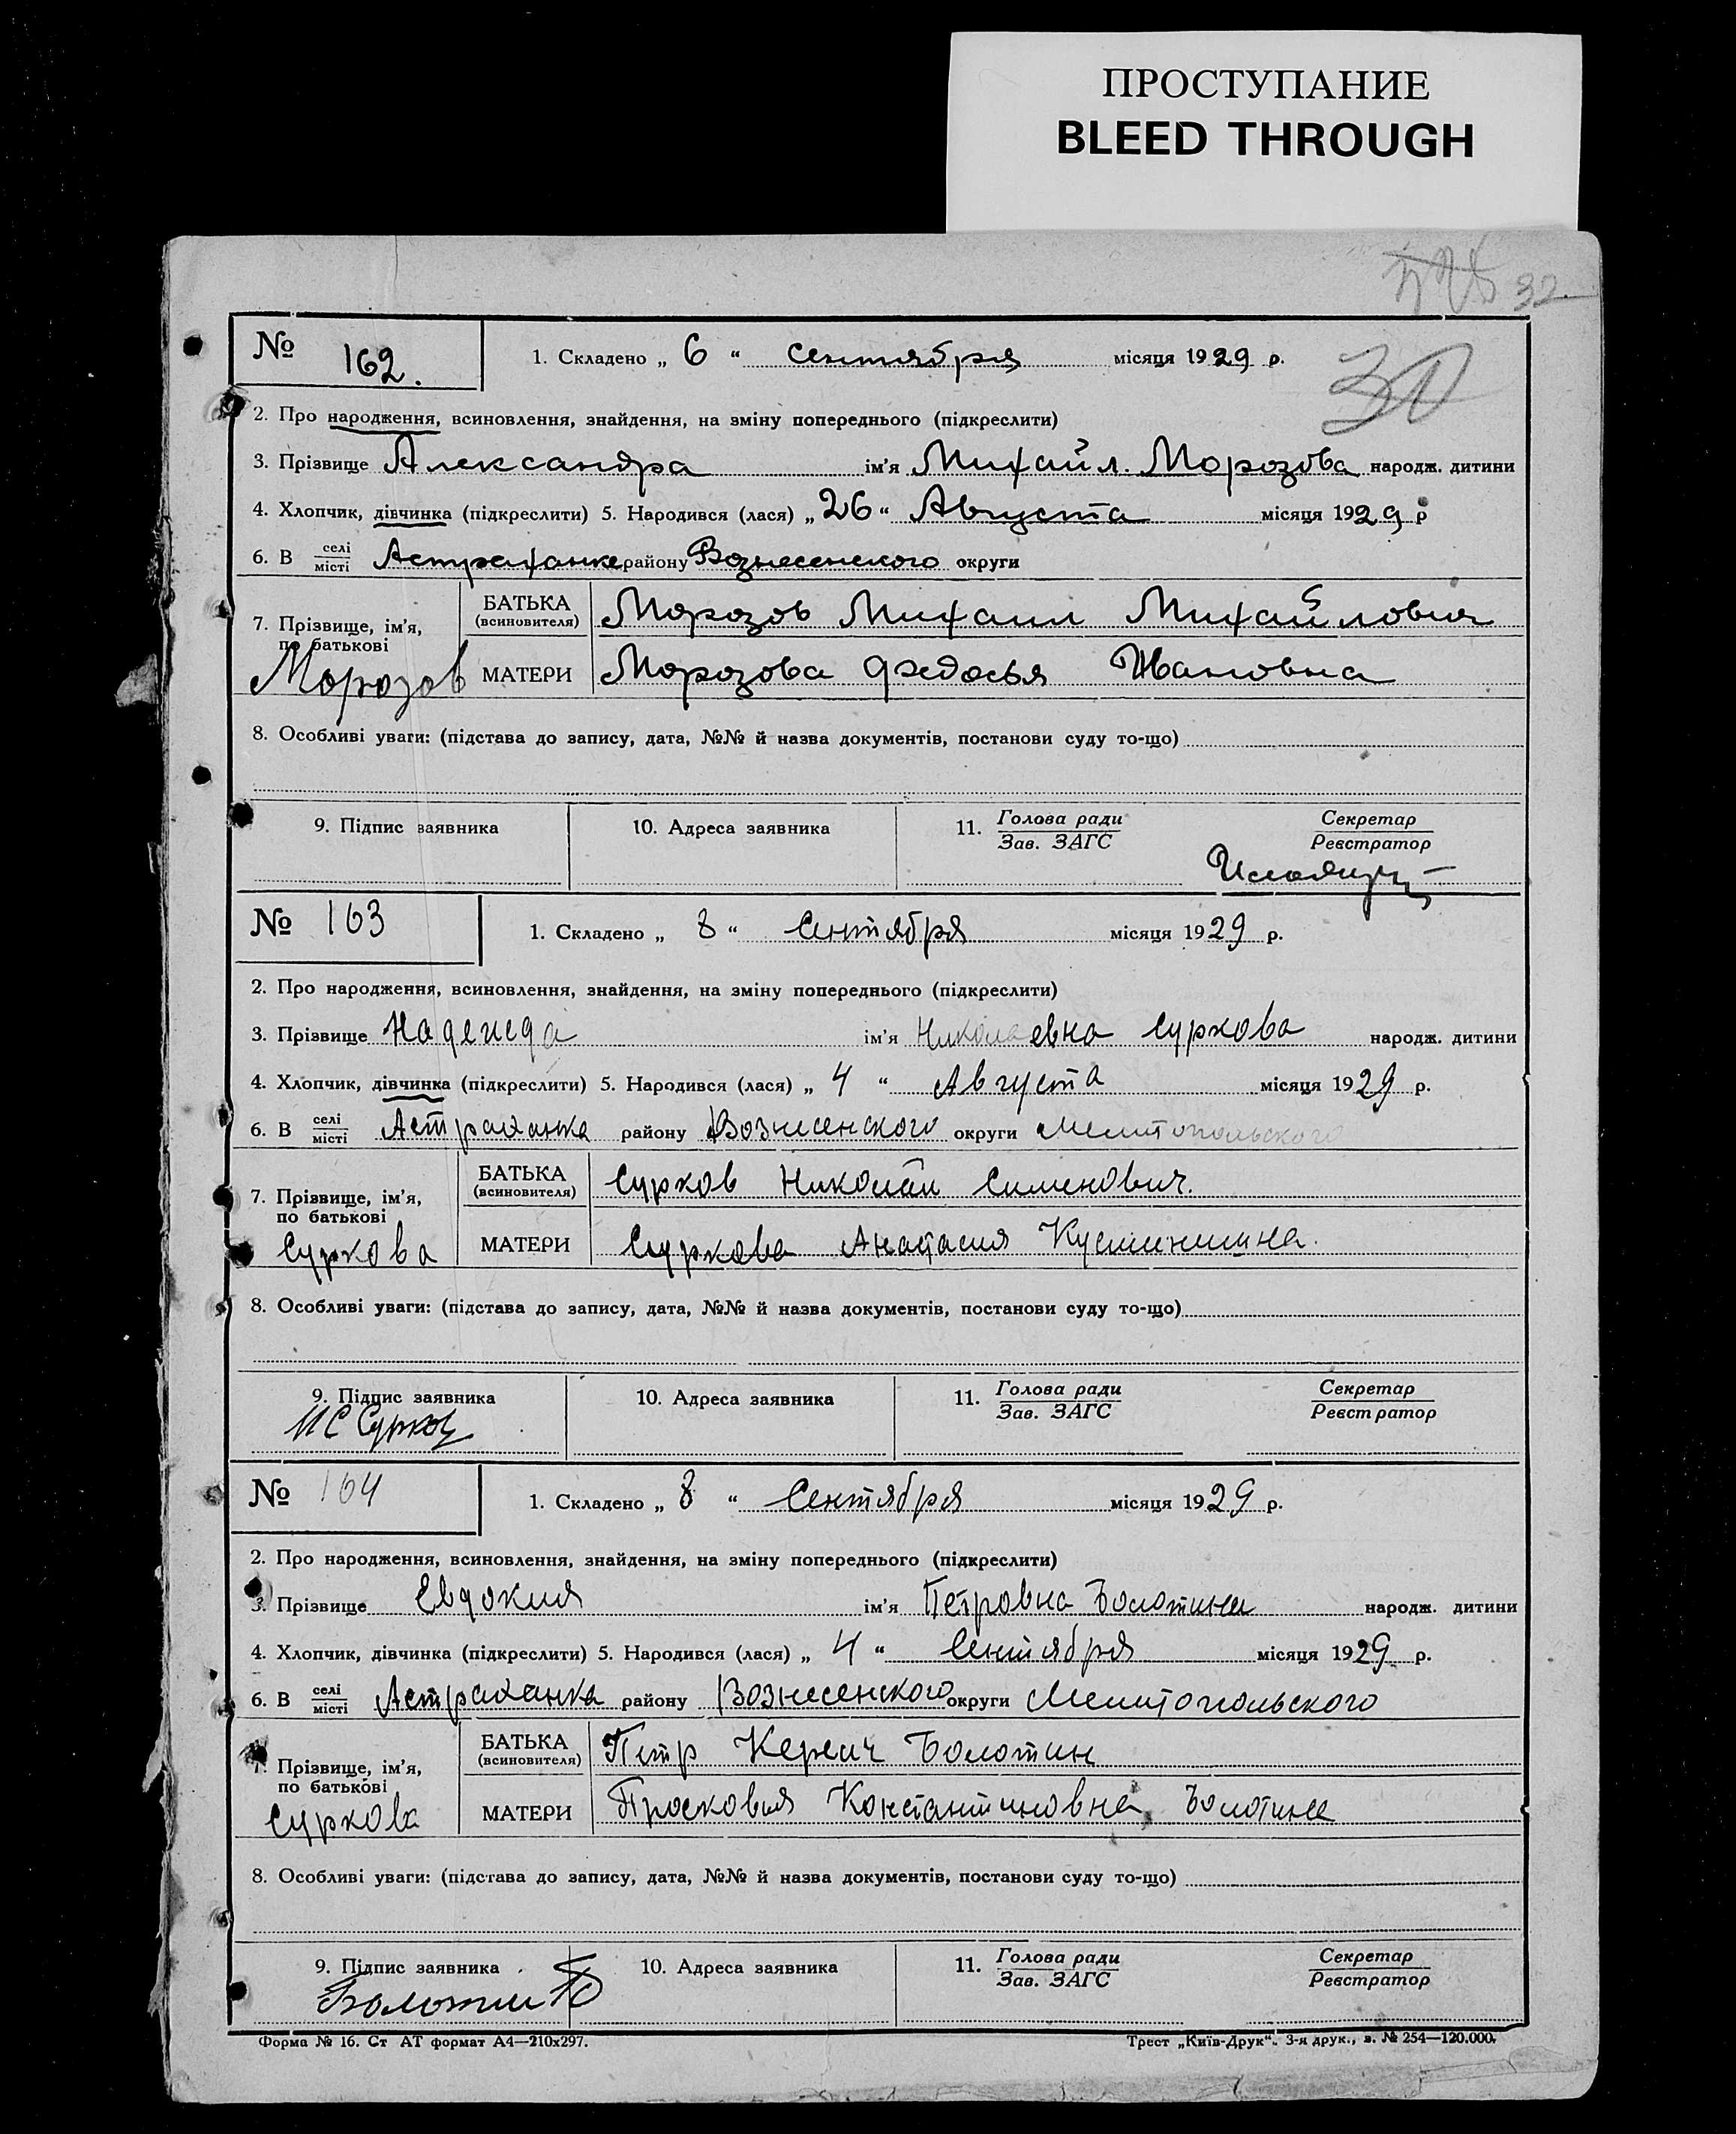 ПРОСТУПАНИЕ
BLEED THROUGH
32.
30
№ 162.
1. Складено „ 6 “ сентября місяця 1929 р.
2. Про народження, всиновлення, знайдення, на зміну попереднього (підкреслити)
3. Прізвище Александра ім'я Михайл. Морозова народж. дитини
4. Хлопчик, дівчинка (підкреслити) 5. Народився (лася) „ 26 “ Августа місяця 1929 р
6. В селі/місті Астраханке району Вознесенского округи
7. Прізвище, ім'я, по батькові
БАТЬКА (всиновителя) Морозов Михаил Михайлович
Морозов
МАТЕРИ Морозова Федосья Ивановна
8. Особливі уваги: (підстава до запису, дата, №№ й назва документів, постанови суду то-що)
9. Підпис заявника 10. Адреса заявника 11. Голова ради/Зав. ЗАГС Секретар/Реєстратор
№ 163
1. Складено „ 8 “ Сентября місяця 1929 р.
2. Про народження, всиновлення, знайдення, на зміну попереднього (підкреслити)
3. Прізвище Надежда ім'я Николаевна Суркова народж. дитини
4. Хлопчик, дівчинка (підкреслити) 5. Народився (лася) „ 4 “ Августа місяця 1929 р.
6. В селі/місті Астраханка району Вознесенского округи Мелитопольского
7. Прізвище, ім'я, по батькові
БАТЬКА (всиновителя) Сурков Николай Сименович.
Суркова
МАТЕРИ Суркова Анастасия
8. Особливі уваги: (підстава до запису, дата, №№ й назва документів, постанови суду то-що)
9. Підпис заявника 10. Адреса заявника 11. Голова ради/Зав. ЗАГС Секретар/Реєстратор
Н С Сурков
№ 164
1. Складено „ 8 “ Сентября місяця 1929 р.
2. Про народження, всиновлення, знайдення, на зміну попереднього (підкреслити)
3. Прізвище Евдокия ім'я Петровна Болотина народж. дитини
4. Хлопчик, дівчинка (підкреслити) 5. Народився (лася) „ 4 “ Сентября місяця 1929 р.
6. В селі/місті Астраханка району Вознесенского округи Мелитопольского
7. Прізвище, ім'я, по батькові
БАТЬКА (всиновителя) Петр Болотин
Суркова
МАТЕРИ Прасковья Константиновна Болотина
8. Особливі уваги: (підстава до запису, дата, №№ й назва документів, постанови суду то-що)
9. Підпис заявника 10. Адреса заявника 11. Голова ради/Зав. ЗАГС Секретар/Реєстратор
Болотин
Форма № 16. Ст АТ формат А4—210х297. Трест „Київ-Друк“. 3-я друк., з. № 254—120.000.